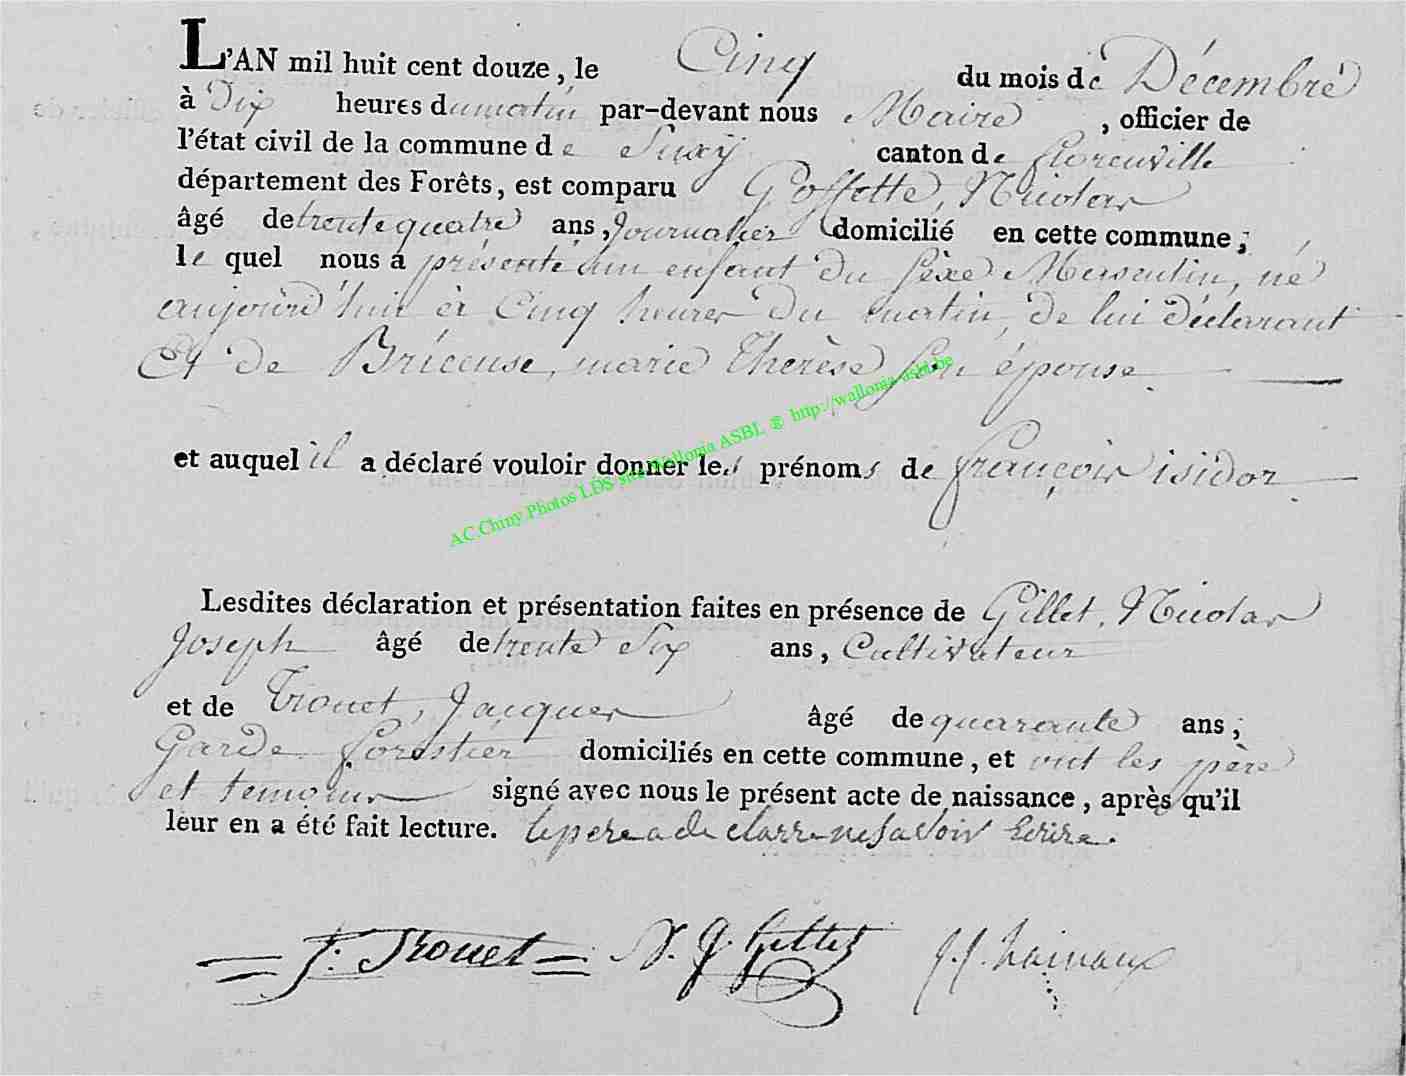 L'AN mil huit cent douze, le Cinq du mois de Décembre
à Dix heures du matin par-devant nous Maire, officier de
l'état civil de la commune de Suxÿ canton de florenville
département des Forêts, est comparu Goffette, Nicolas
âgé de trente quatre ans, Journalier domicilié en cette commune;
le quel nous a présenté un enfant du sèxe Masculin, né
aujourd'huit à Cinq heures du matin, de lui déclarant
Et de Briceuse, marie Therèse son épouse.
et auquel il a déclaré vouloir donner les prénoms de françois isidor
AC.Chiny.Photos LDS site Wallonia ASBL @ http://wallonia-asbl.be
Lesdites déclaration et présentation faites en présence de Gillet, Nicolas
Joseph âgé de trente Six ans, Cultivateur
et de Trouet, Jacques âgé de quarante ans;
Garde forestier domiciliés en cette commune, et ont les père
et temoins signé avec nous le présent acte de naissance, après qu'il
leur en a été fait lecture. le pere a declarre ne savoir Ecrire.
J: Trouet N. J. Gillet J. J. hainaux